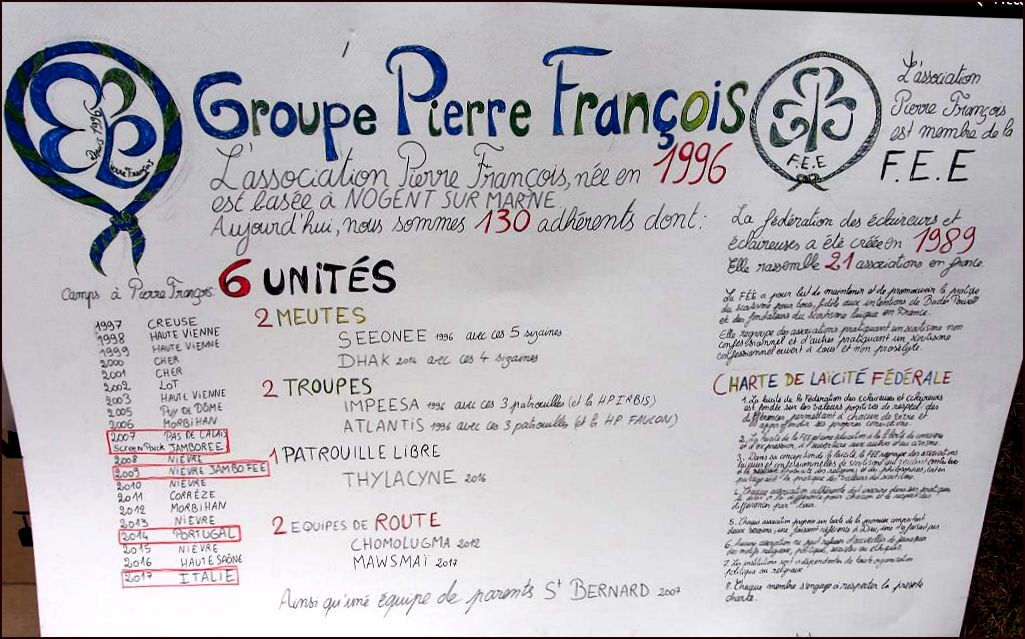 Groupe Pierre François
L'association Pierre François, née en 1996
est basée à NOGENT SUR MARNE
Aujourd'hui, nous sommes 130 adhérents dont:
Pierre François
F.E.E
L'association
Pierre François
est membre de la
F.E.E
Camps à Pierre François
1997 CREUSE
1998 HAUTE VIENNE
1999 HAUTE VIENNE
2000 CHER
2001 CHER
2002 LOT
2003 HAUTE VIENNE
2005 PUY DE DÔME
2006 MORBIHAN
2007 PAS DE CALAIS
JAMBOREE
2008 NIEVRE
2009 NIEVRE JAMBOFEE
2010 NIEVRE
2011 CORRÈZE
2012 MORBIHAN
2013 NIEVRE
2014 PORTUGAL
2015 NIEVRE
2016 HAUTE SAÔNE
2017 ITALIE
6 UNITÉS
2 MEUTES
SEEONEE 1996 avec ces 5 sizaines
DHAK 2014 avec ces 4 sizaines
2 TROUPES
IMPEESA 1996 avec ces 3 patrouilles (et la HP IRBIS)
ATLANTIS 1996 avec ces 3 patrouilles (et la HP FAUCON)
1 PATROUILLE LIBRE
THYLACYNE 2016
2 EQUIPES DE ROUTE
CHOMOLUGMA 2012
MAWSMAÏ 2017
Ainsi qu'une équipe de parents St BERNARD 2007
La fédération des éclaireurs et
éclaireuses a été créée en 1989
Elle rassemble 21 associations en france.
La FÉE a pour but de maintenir et de promouvoir la pratique
du scoutisme pour tous, fidèle aux intentions de Baden Powell
et des fondateurs du scoutisme laïque en France.
Elle regroupe des associations pratiquant un scoutisme non
confessionnel et d'autres pratiquant un scoutisme
confessionnel ouvert à tous et non prosélyte.
CHARTE DE LAÏCITÉ FÉDÉRALE
1. La laïcité de la Fédération des éclaireuses et éclaireurs
est fondée sur les valeurs positives de respect des
différences permettant à chacun de vivre et
d'approfondir ses propres convictions.
5. Chaque association propose un texte de la promesse comportant
deux versions, une faisant référence à Dieu, une n'en faisant pas.
6. Aucune association ne peut refuser d'accueillir de jeunes pour
des motifs religieux, politiques, sociaux ou ethniques.
7. Les institutions sont indépendantes de toute organisation
politique ou religieuse
8. Chaque membre s'engage à respecter la présente
charte.